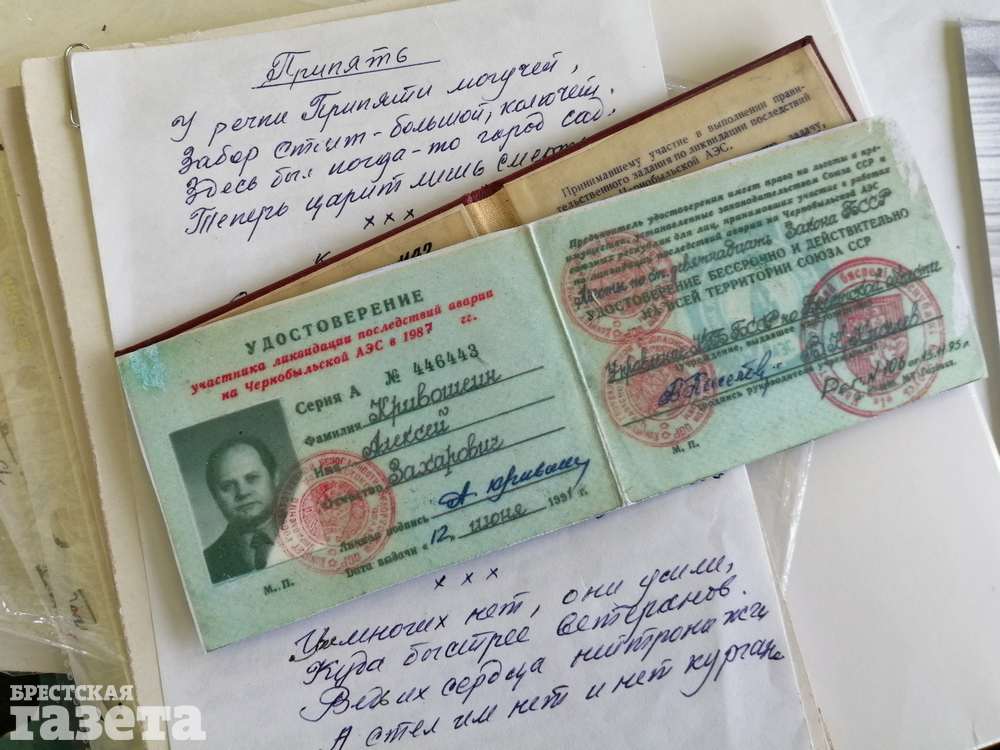 Припять
У речки Припяти могучей,
Забор стоит - большой, колючей.
Здесь был когда-то город сад,
Теперь царит лишь
х х х
Принимавшему участие в выполнении прави-
тельственного задания по ликвидации последствий
Чернобыльской АЭС.
УДОСТОВЕРЕНИЕ
участника ликвидации последствий аварии
на Чернобыльской АЭС в 1987 гг.
Серия А № 446443
Фамилия Кривошеин
Имя Алексей
Отчество Захарович
Личная подпись
Дата выдачи « 12 июня 1991 г.
М. П.
Предъявитель удостоверения имеет право на льготы и пре-
имущества, установленные законодательством Союза ССР и
союзных республик для лиц, принимавших участие в работах
по ликвидации последствий аварии на Чернобыльской АЭС
Льготы по ст. девятнадцать Закона БССР
УДОСТОВЕРЕНИЕ БЕССРОЧНО И ДЕЙСТВИТЕЛЬНО
НА ВСЕЙ ТЕРРИТОРИИ СОЮЗА ССР
Управление БССР по Брестской области
учреждение, выдавшее
подпись руководителя
Рег. № 106 от 15.11.95 г.
М. П.
х х х
Уж многих нет, они ушли,
Куда быстрее ветеранов.
Ведь их сердца
А стел им нет и нет кургана
БРЕСТСКАЯ
газета